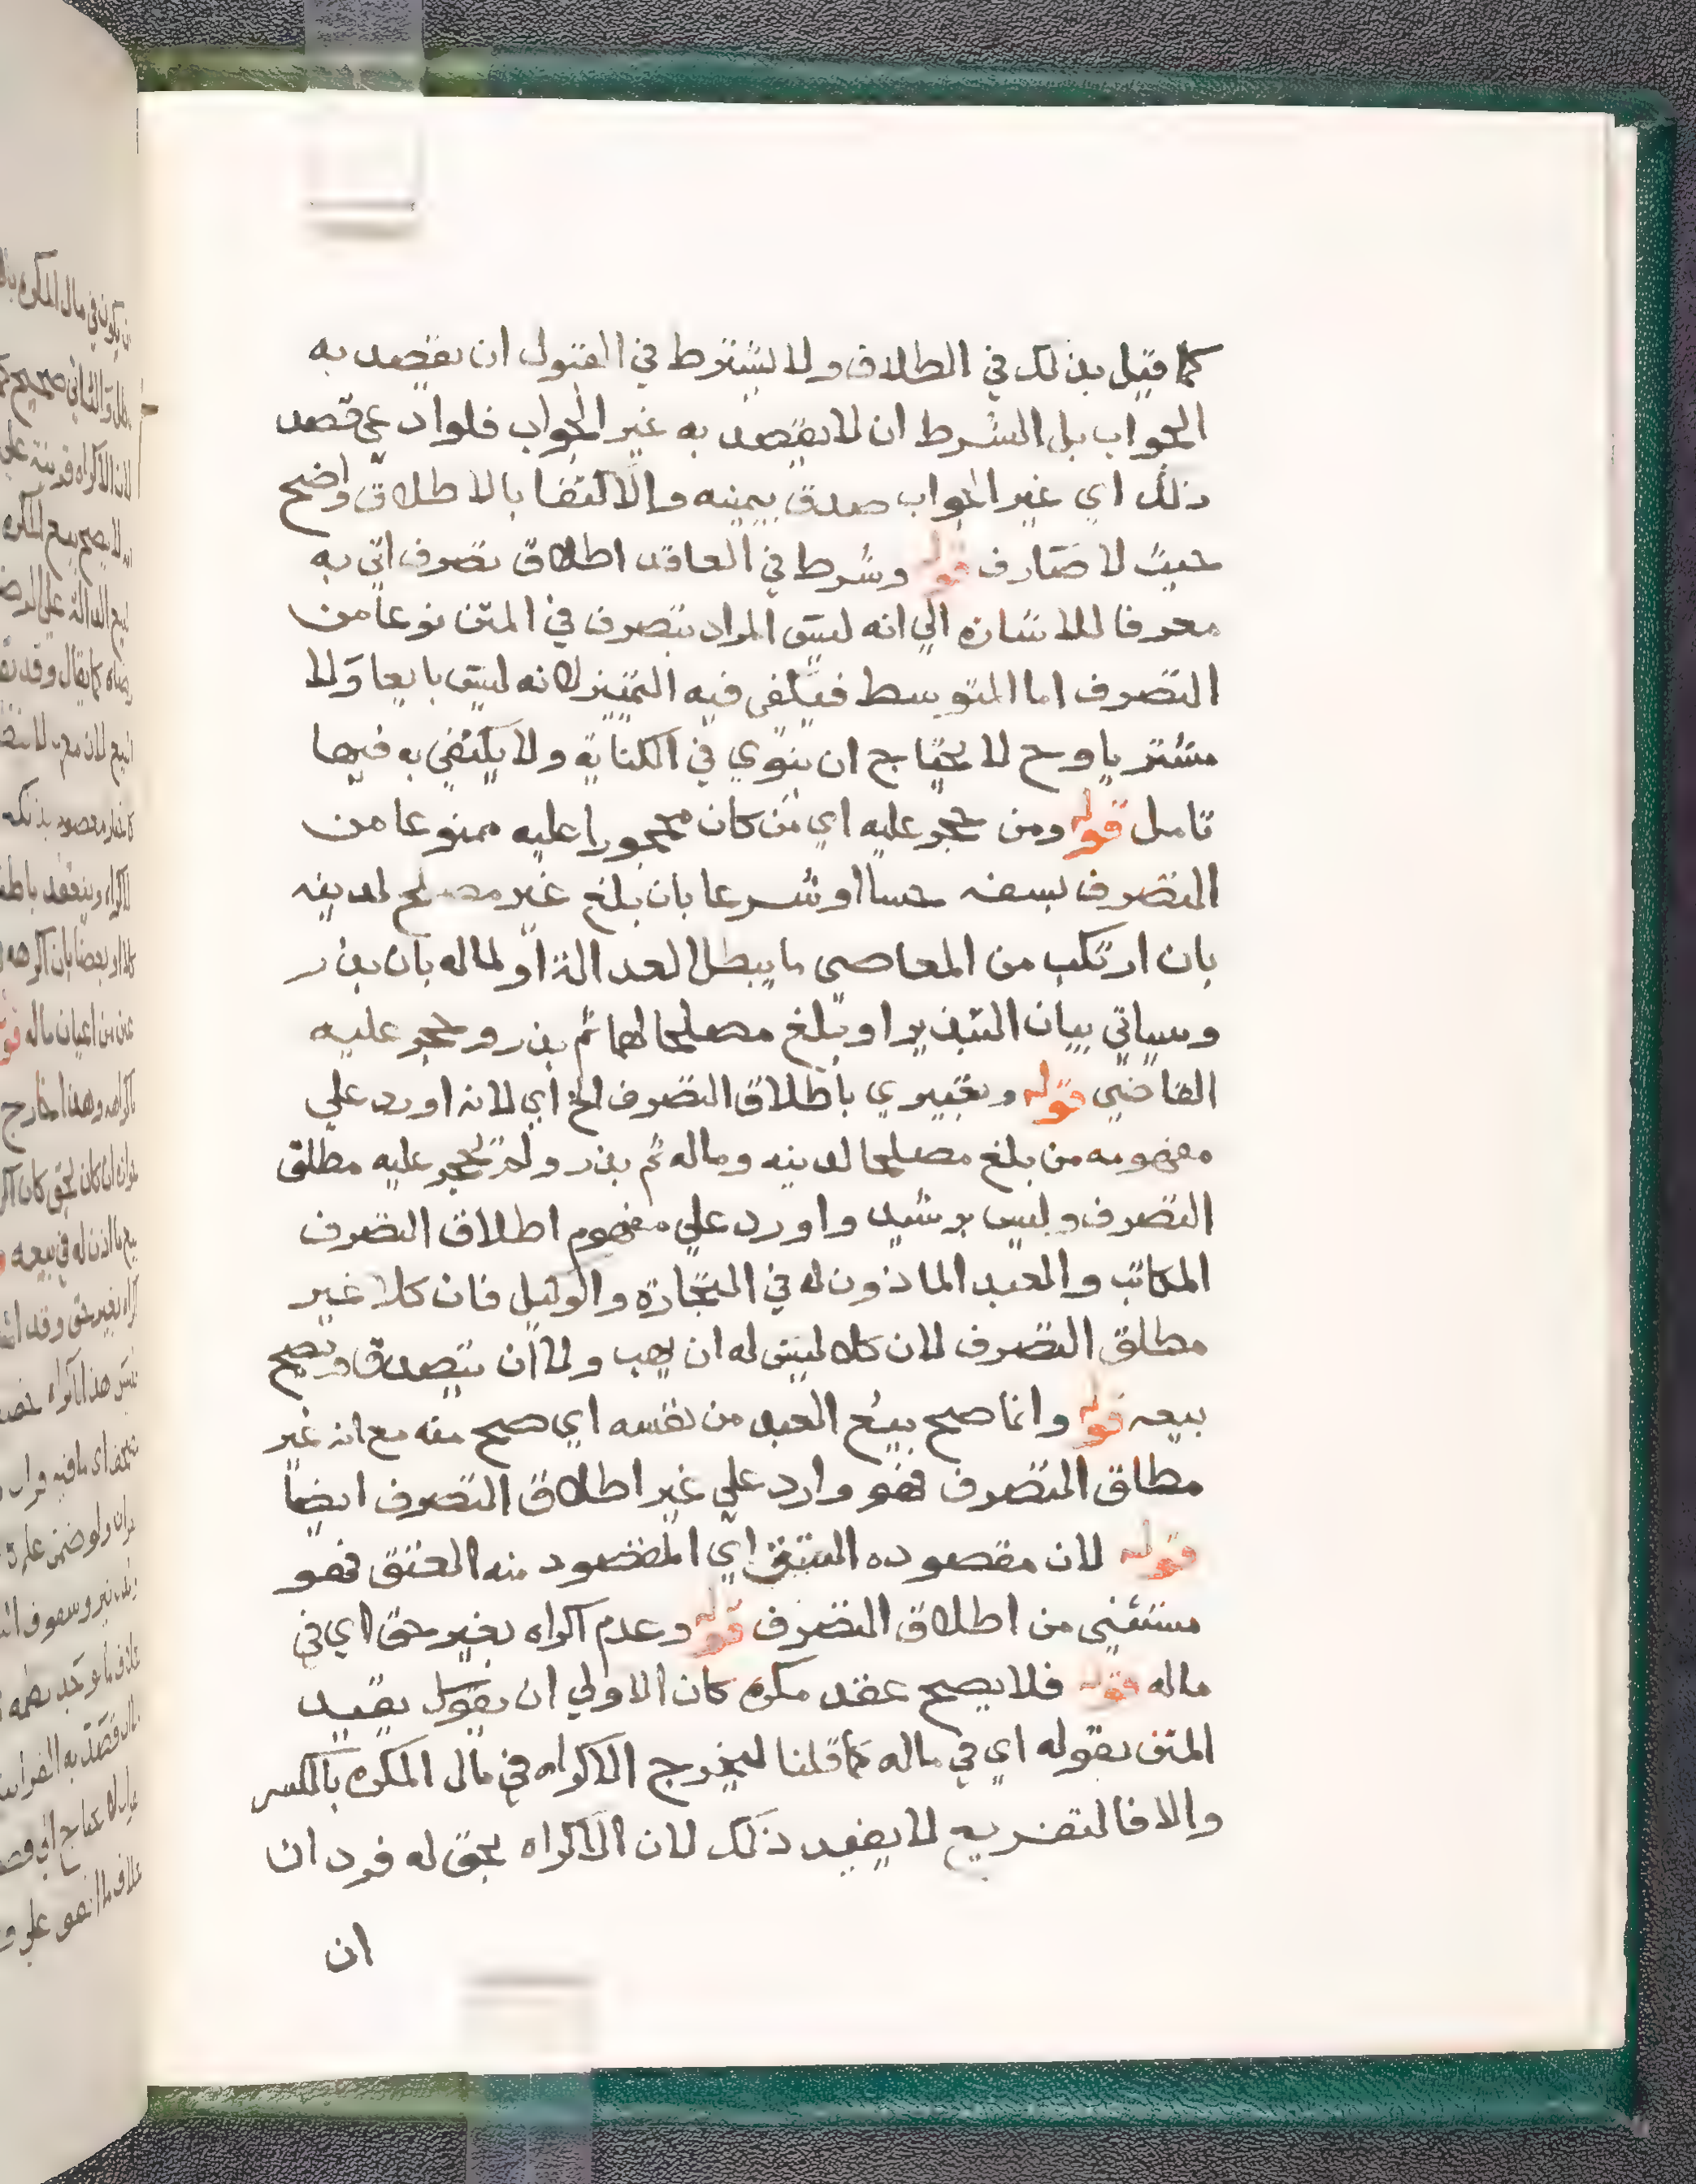 كما قيل بذلك في الطلاق ولا يشترط في القبول ان يقصد به
الجواب بل الشرط ان لا يقصد به غير الجواب فلو ادعي قصد
ذلك اي غير الجواب صدق بيمينه والاكتفا بالاطلاق واضح
حيث لا صارف قوله وشرط في العاقد اطلاق تصرف اتي به
معرفا للاشارة الي انه ليس المراد بتصرف في المتن نوعا من
التصرف اما المتوسط فيكفي فيه التمييز لانه ليس بايعا ولا
مشتريا وح لا يحتاج ان ينوي في الكناية ولا يكتفي به فيها
تامل قوله ومن حجر عليه اي من كان محجورا عليه ممنوعا من
التصرف بسفه حسا او شرعا بان بلغ غير مصلح لدينه
بان ارتكب من المعاصي ما يبطل العدالة او لماله بان بذر
وسياتي بيان التبذير او بلغ مصلحا لهما ثم بذر وحجر عليه
القاضي قوله وتعبيري باطلاق التصرف الخ اي لانه اورد علي
مفهومه من بلغ مصلحا لدينه وماله ثم بذر ولم يحجر عليه مطلق
التصرف وليس برشيد واورد علي مفهوم اطلاق التصرف
المكاتب والعبد الماذون له في التجارة والوكيل فان كلا غير
مطلق التصرف لان كلا ليس له ان يهب ولا ان يتصدق ويصح
بيعه قوله وانما صح بيع العبد من نفسه اي صح منه مع انه غير
مطلق التصرف فهو وارد علي غير اطلاق التصرف ايضا
قوله لان مقصوده العتق اي المقصود منه العتق فهو
مستثني من اطلاق التصرف قوله وعدم اكراه بغير حق اي في
ماله قوله فلا يصح عقد مكره كان الاولي ان يقول بقيد
المتن بقوله اي في ماله كما قلنا ليخرج الاكراه في مال المكره بالكسر
والا فالتفريع لا يفيد ذلك لان الاكراه بحق له فردان
ان